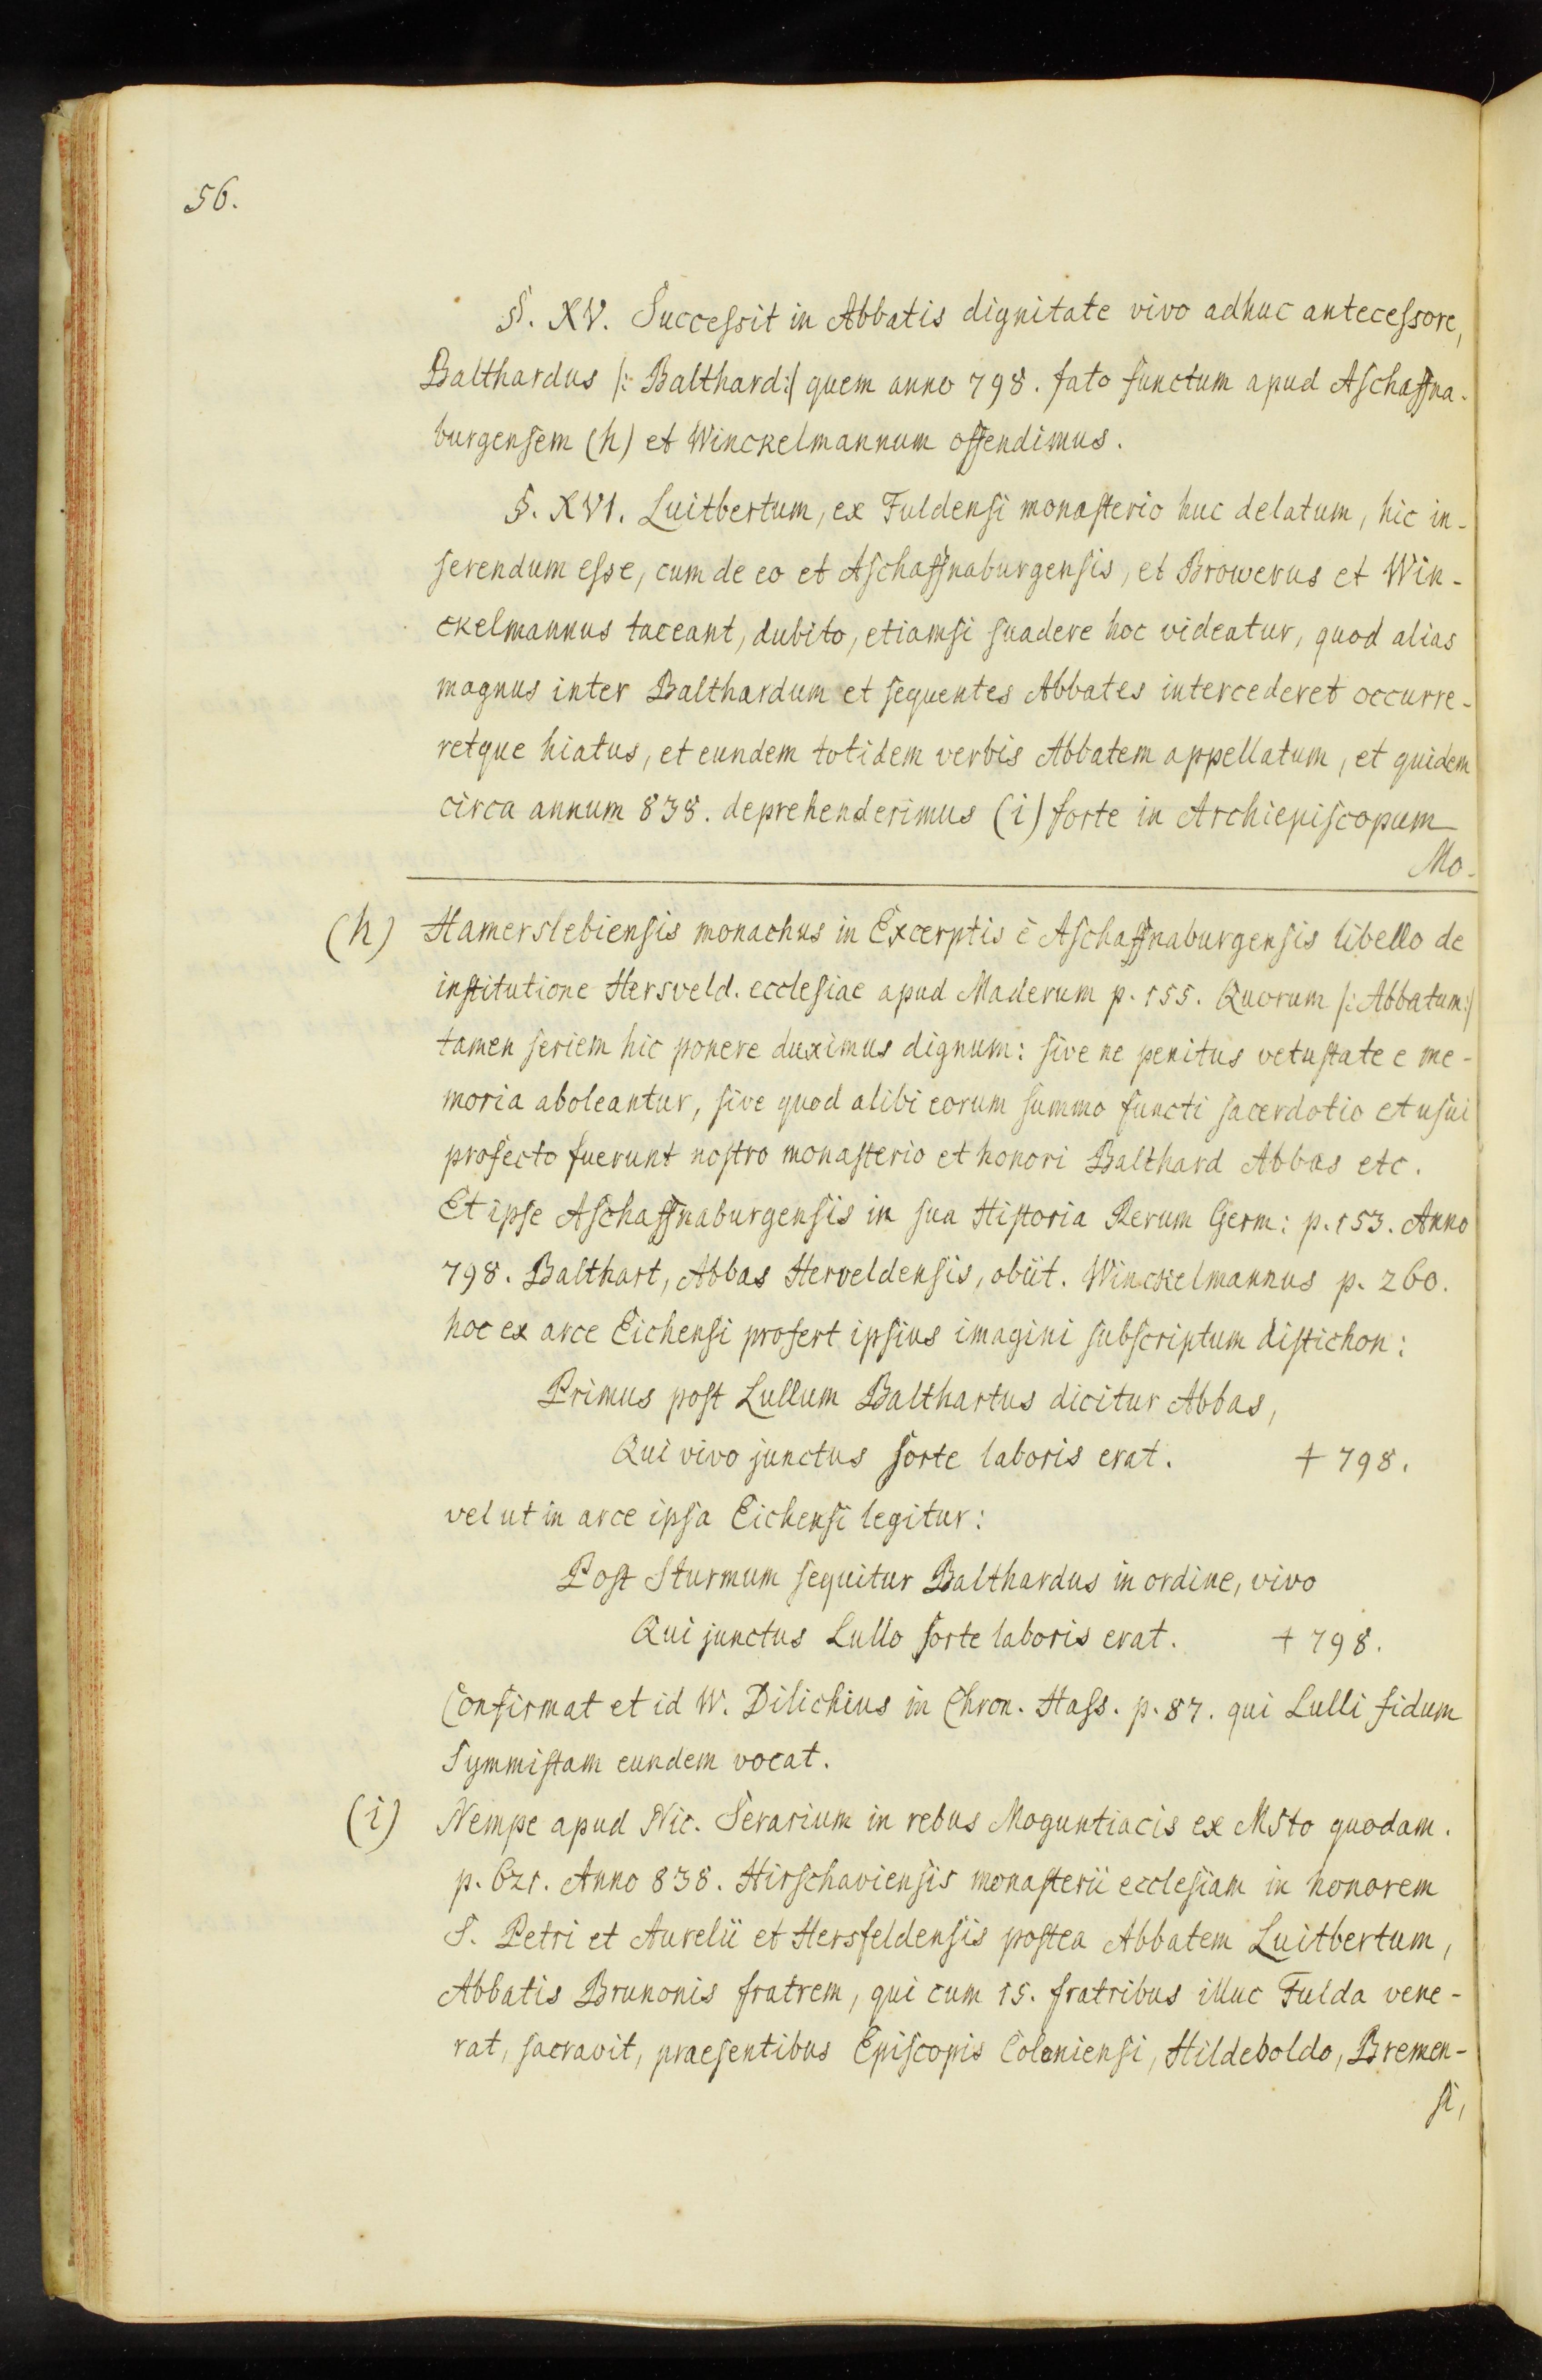 56.
§. XV. Successit in Abbatis dignitate vivo adhuc antecessore,
Balthardus /: Balthard:/ quem anno 798. fato functum apud Aschaffna-
burgensem (h) et Winckelmannum offendimus.
§. XVI. Luitbertum, ex Fuldensi monasterio huc delatum, hic in-
serendum esse, cum de eo et Aschaffnaburgensis, et Browerus et Win-
ckelmannus taceant, dubito, etiamsi suadere hoc videatur, quod alias
magnus inter Balthardum et sequentes Abbates intercederet occurre-
retque hiatus, et eundem totidem verbis Abbatem appellatum, et quidem
circa annum 838. deprehenderimus (i) forte in Archiepiscopum
Mo-
(h) Hamerslebiensis monachus in Excerptis è Aschaffnaburgensis libello de
institutione Hersveld. ecclesiae apud Maderum p. 155. Quorum /: Abbatum:/
tamen seriem hic ponere duximus dignum: sive ne penitus vetustate e me-
moria aboleantur, sive quod alibi eorum summo functi sacerdotio et usui
profecto fuerunt nostro monasterio et honori Balthard Abbas etc.
Et ipse Aschaffnaburgensis in sua Historia Rerum Germ: p. 153. Anno
798. Balthart, Abbas Herveldensis, obiit. Winckelmannus p. 260.
hoc ex arce Eichensi profert ipsius imagini subscriptum distichon:
Primus post Lullum Balthartus dicitur Abbas,
Qui vivo junctus sorte laboris erat. † 798.
vel ut in arce ipsa Eichensi legitur:
Post Sturmum sequitur Balthardus in ordine, vivo
Qui junctus Lullo sorte laboris erat. † 798.
Confirmat et id W. Dilichius in Chron. Hass. p. 87. qui Lulli fidum
Symmistam eundem vocat.
(i) Nempe apud Nic. Serarium in rebus Moguntiacis ex MSto quodam.
p. 621. Anno 838. Hirschaviensis monasterii ecclesiam in honorem
S. Petri et Aurelii et Hersfeldensis postea Abbatem Luitbertum,
Abbatis Brunonis fratrem, qui cum 15. fratribus illuc Fulda vene-
rat, sacravit, praesentibus Episcopis Coloniensi, Hildeboldo, Bremen-
si,